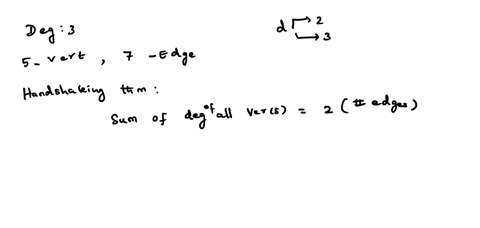 Deg: 3
d → 2
→ 3
5-vert, 7-Edge
Handshaking thm:
Sum of deg of all ver(s) = 2 (# edges)